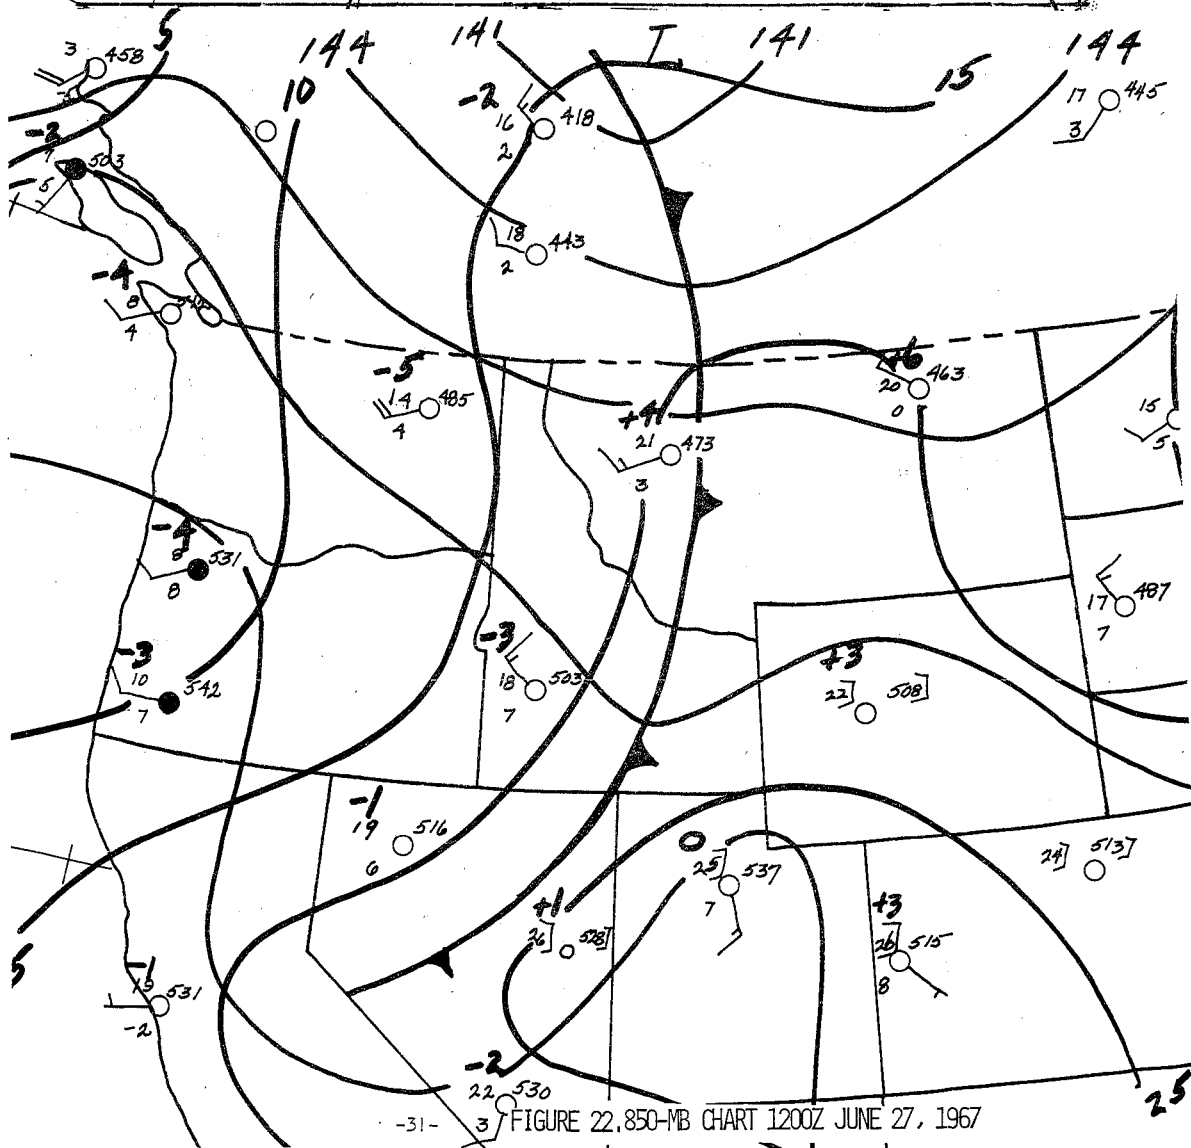 5
144
141
T
141
144
3
458
10
-2
15
17
445
3
16
418
2
-2
7
503
5
18
443
2
-4
8
4
-5
14
485
4
+6
20
463
0
+4
21
473
3
15
5
-4
8
531
8
17
487
7
-3
10
542
7
-3
18
503
7
+3
22]
508]
-1
19
516
6
0
25
537
7
24]
513]
+1
26]
528]
+3
26
515
8
5
-1
19
531
-2
-2
22
530
3
25
-31- FIGURE 22. 850-MB CHART 1200Z JUNE 27, 1967